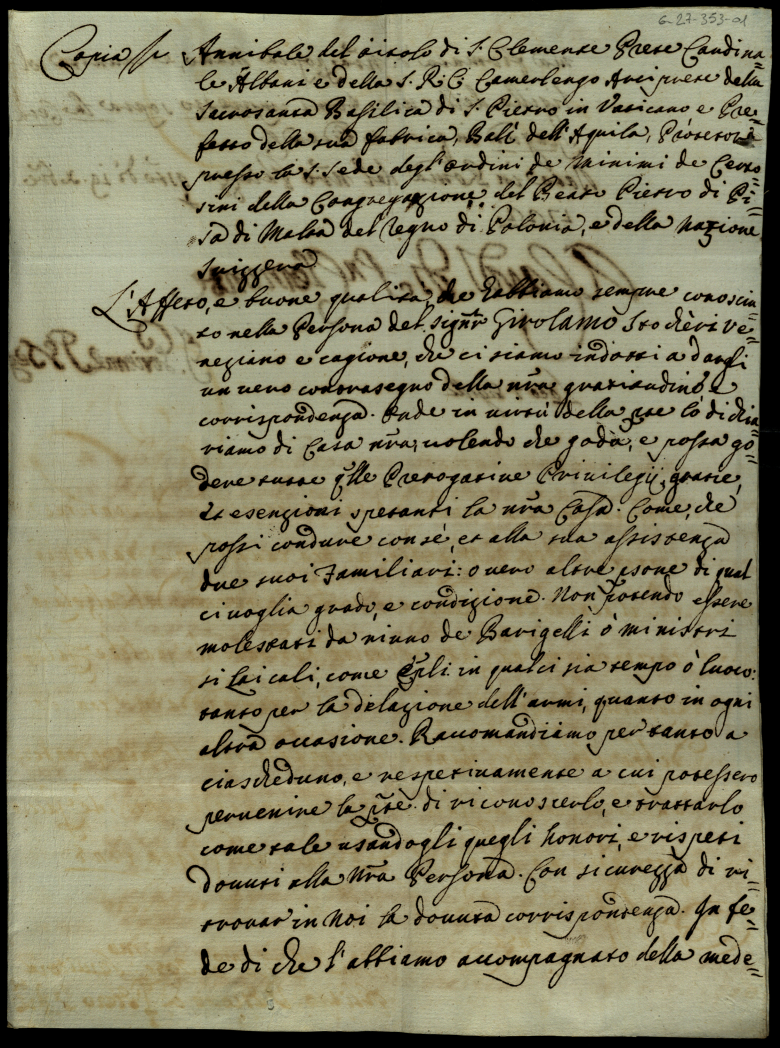 6-27-353-01
Copia Annibale del titolo di S. Clemente Prete Cardina=
le Albani e della S. R. C. Camerlengo Arciprete della
Sacrosanta Basilica di S. Pietro in Vaticano e Pre=
fetto della sua fabrica, Balì dell'Aquila, Protettore
presso la S. Sede degl'ordini de Minimi de Certo=
sini della Congregazione del Beato Pietro di Pi=
sa di Malta del Regno di Polonia, e della Nazione
Suizzera
L'Affetto, e buone qualità, che habbiamo sempre conosciu=
to nella Persona del Signr Girolamo Ve=
neziano e cagione, che ci siamo indotti a darli
un vero contrasegno della nra gratitudine, e
corrispondenza. Onde in virtù della pte lo dichia=
riamo di Casa nra, volendo che goda, e possa go=
dere tutte qlle Prerogative Privilegij, gratie,
et esenzioni spetanti la nra Casa. Come, che
possi condure con sè, et alla sua assistenza
due suoi Familiari: o vero altre psone di qual
ci voglia grado, e condizione. Non potendo essere
molestati da niuno de Barigelli ò ministri
si Laicali, come in qualci sia tempo ò luoco:
tanto per la delazione dell'armi, quanto in ogni
altra occasione. Raccomandiamo per tanto a
ciascheduno, e respetivamente a cui potessero
pervenire la pte di riconoscerlo, e trattarlo
come tale usandogli quegli honori, e rispeti
dovuti alla Nra Persona. Con sicurezza di ri=
trovar in Noi la dovuta corrispondenza. In fe=
de di che l'abbiamo accompagnato della mede=